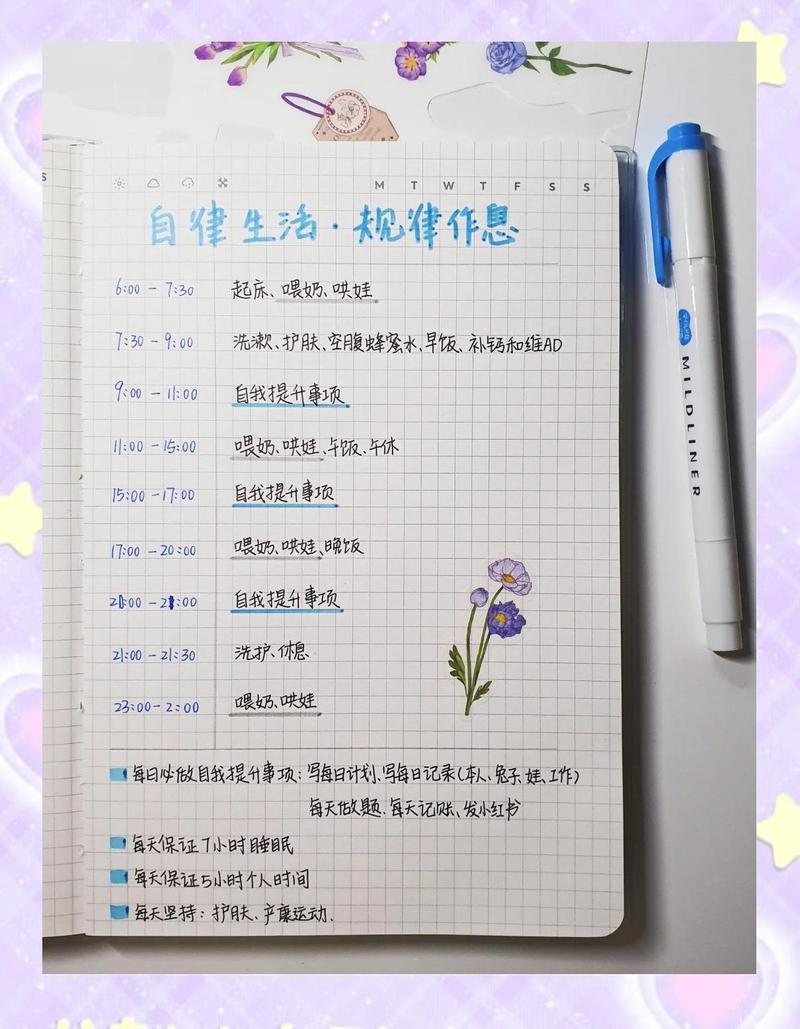 S
M T W T F S S
自律生活·规律作息
6:00 - 7:30 起床、喂奶、哄娃
7:30 - 9:00 洗漱、护肤、空腹蜂蜜水、早饭、补钙和维AD
9:00 - 11:00 自我提升事项
11:00 - 15:00 喂奶、哄娃、午饭、午休
15:00 - 17:00 自我提升事项
17:00 - 20:00 喂奶、哄娃、晚饭
20:00 - 21:00 自我提升事项
21:00 - 21:30 洗护、休息
23:00 - 2:00 喂奶、哄娃
每日必做自我提升事项：写每日计划、写每日记录(本人、兔子、娃、工作)
每天做题、每天记账、发小红书
每天保证7小时睡眠
每天保证5小时个人时间
每天坚持：护肤、产康运动.
MILDLINER